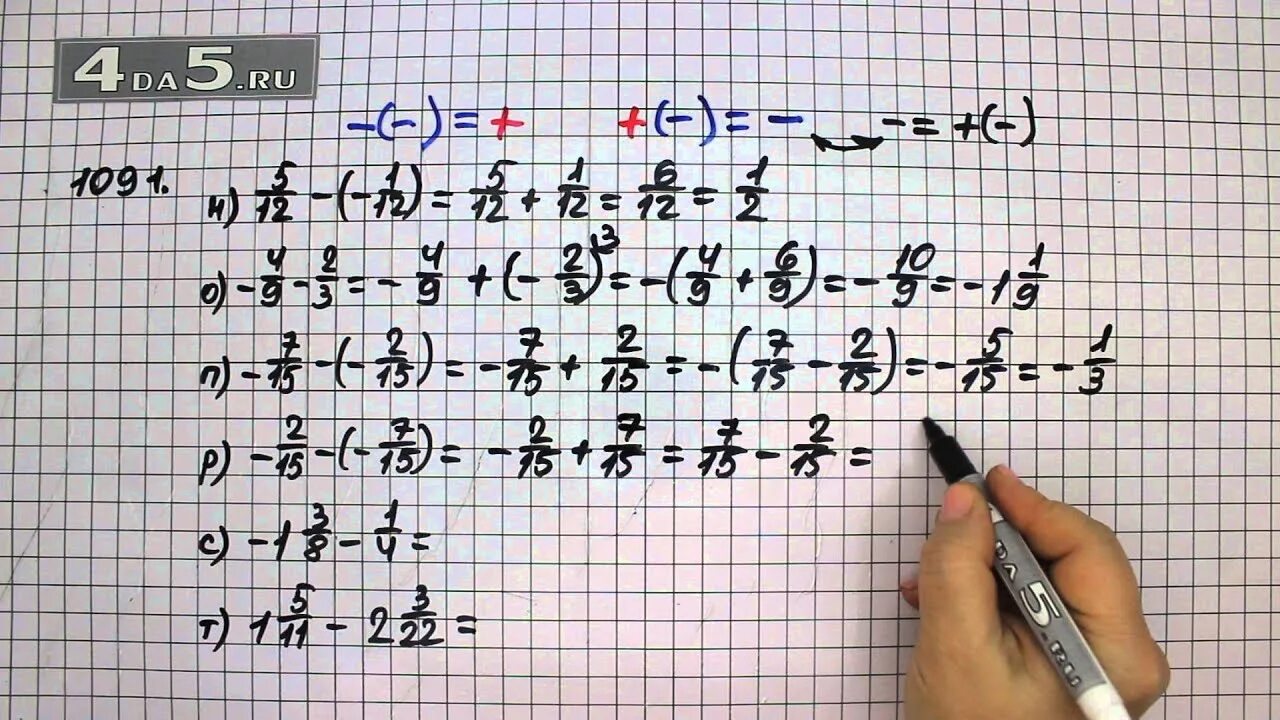 4DA5.RU
-(-) = +   +(-) = -   - = +(-)
1091. н) 5/12 - (-1/12) = 5/12 + 1/12 = 6/12 = 1/2
о) -4/9 - 2/3 = -4/9 + (-2/3)³ = -(4/9 + 6/9) = -10/9 = -1 1/9
п) -7/15 - (-2/15) = -7/15 + 2/15 = -(7/15 - 2/15) = -5/15 = -1/3
р) -2/15 - (-7/15) = -2/15 + 7/15 = 7/15 - 2/15 =
с) -1 3/8 - 1/4 =
т) 1 5/11 - 2 3/22 =
DA5.RU